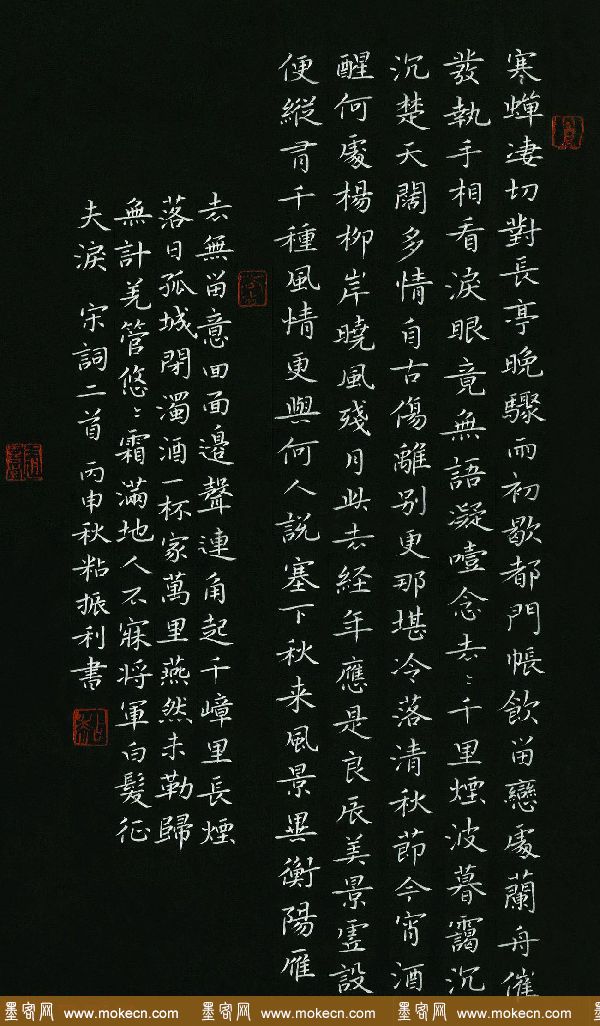 寒蟬凄切對長亭晚驟雨初歇都門帳飲留戀處蘭舟催
發執手相看淚眼竟無語凝噎念去〻千里煙波暮靄沉
沉楚天闊多情自古傷離别更那堪冷落清秋節今宵酒
醒何處楊柳岸曉風殘月此去經年應是良辰美景虛設
便縱有千種風情更與何人説塞下秋来風景異衡陽雁
去無留意四面邊聲連角起千嶂里長煙
落日孤城閉濁酒一杯家萬里燕然未勒歸
無計羌管悠〻霜滿地人不寐将軍白髮征
夫淚 宋詞二首 丙申秋粘振利書
墨客网 www.mokecn.com 墨客网 www.mokecn.com 墨客网 www.mokecn.com